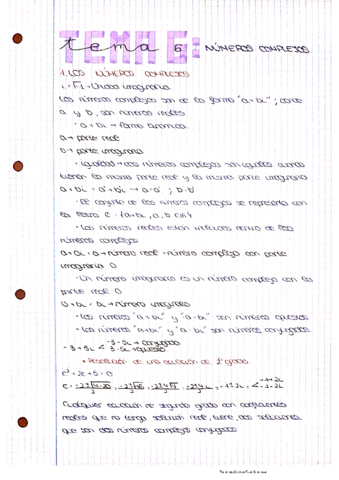 tema 6: NÚMEROS COMPLEJOS
1. LOS NÚMEROS COMPLEJOS
i = √-1 = Unidad imaginaria
Los números complejos son de la forma "a+bi"; donde
a y b, son números reales
· a + bi → forma binómica
a → parte real
b → parte imaginaria
· Igualdad → dos números complejos son iguales cuando
tienen la misma parte real y la misma parte imaginaria
a + bi = a' + b'i → a = a' ; b = b'
· El conjunto de los números complejos se representa con
la letra C = {a+bi, a, b ∈ R}
· Los números reales están incluidos dentro de los
números complejos
a + 0i = a → número real = número complejo con parte
imaginaria 0
· Un número imaginario es un número complejo con la
parte real 0
0 + bi = bi → número imaginario
· Los números "a+bi" y "-a-bi" son números opuestos
· Los números "a+bi" y "a-bi" son números conjugados
-3+5i < -3-5i → conjugado
3-5i → opuesto
• Resolución de una ecuación de 2º grado
Cualquier ecuación de segundo grado con coeficientes
reales que no tenga solución real, tiene dos soluciones
que son dos números complejos conjugados